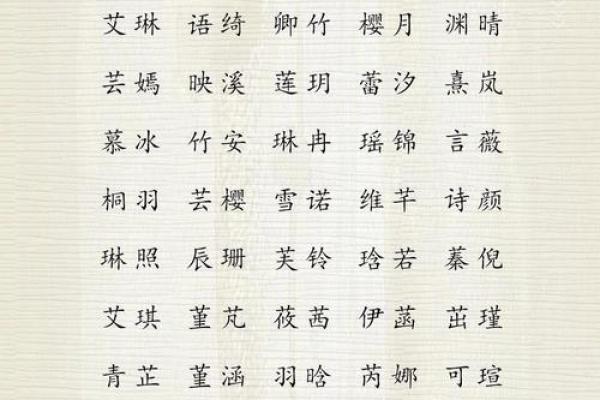 艾琳 语绮 卿竹 樱月 渊晴
芸嫣 映溪 莲玥 蕾汐 熹岚
慕冰 竹安 琳冉 瑶锦 言薇
桐羽 芸樱 雪诺 维芊 诗颜
琳照 辰珊 芙铃 琀若 蓁倪
艾琪 堇芃 莜茜 伊菡 茁瑾
青芷 堇涵 羽晗 芮娜 可瑄